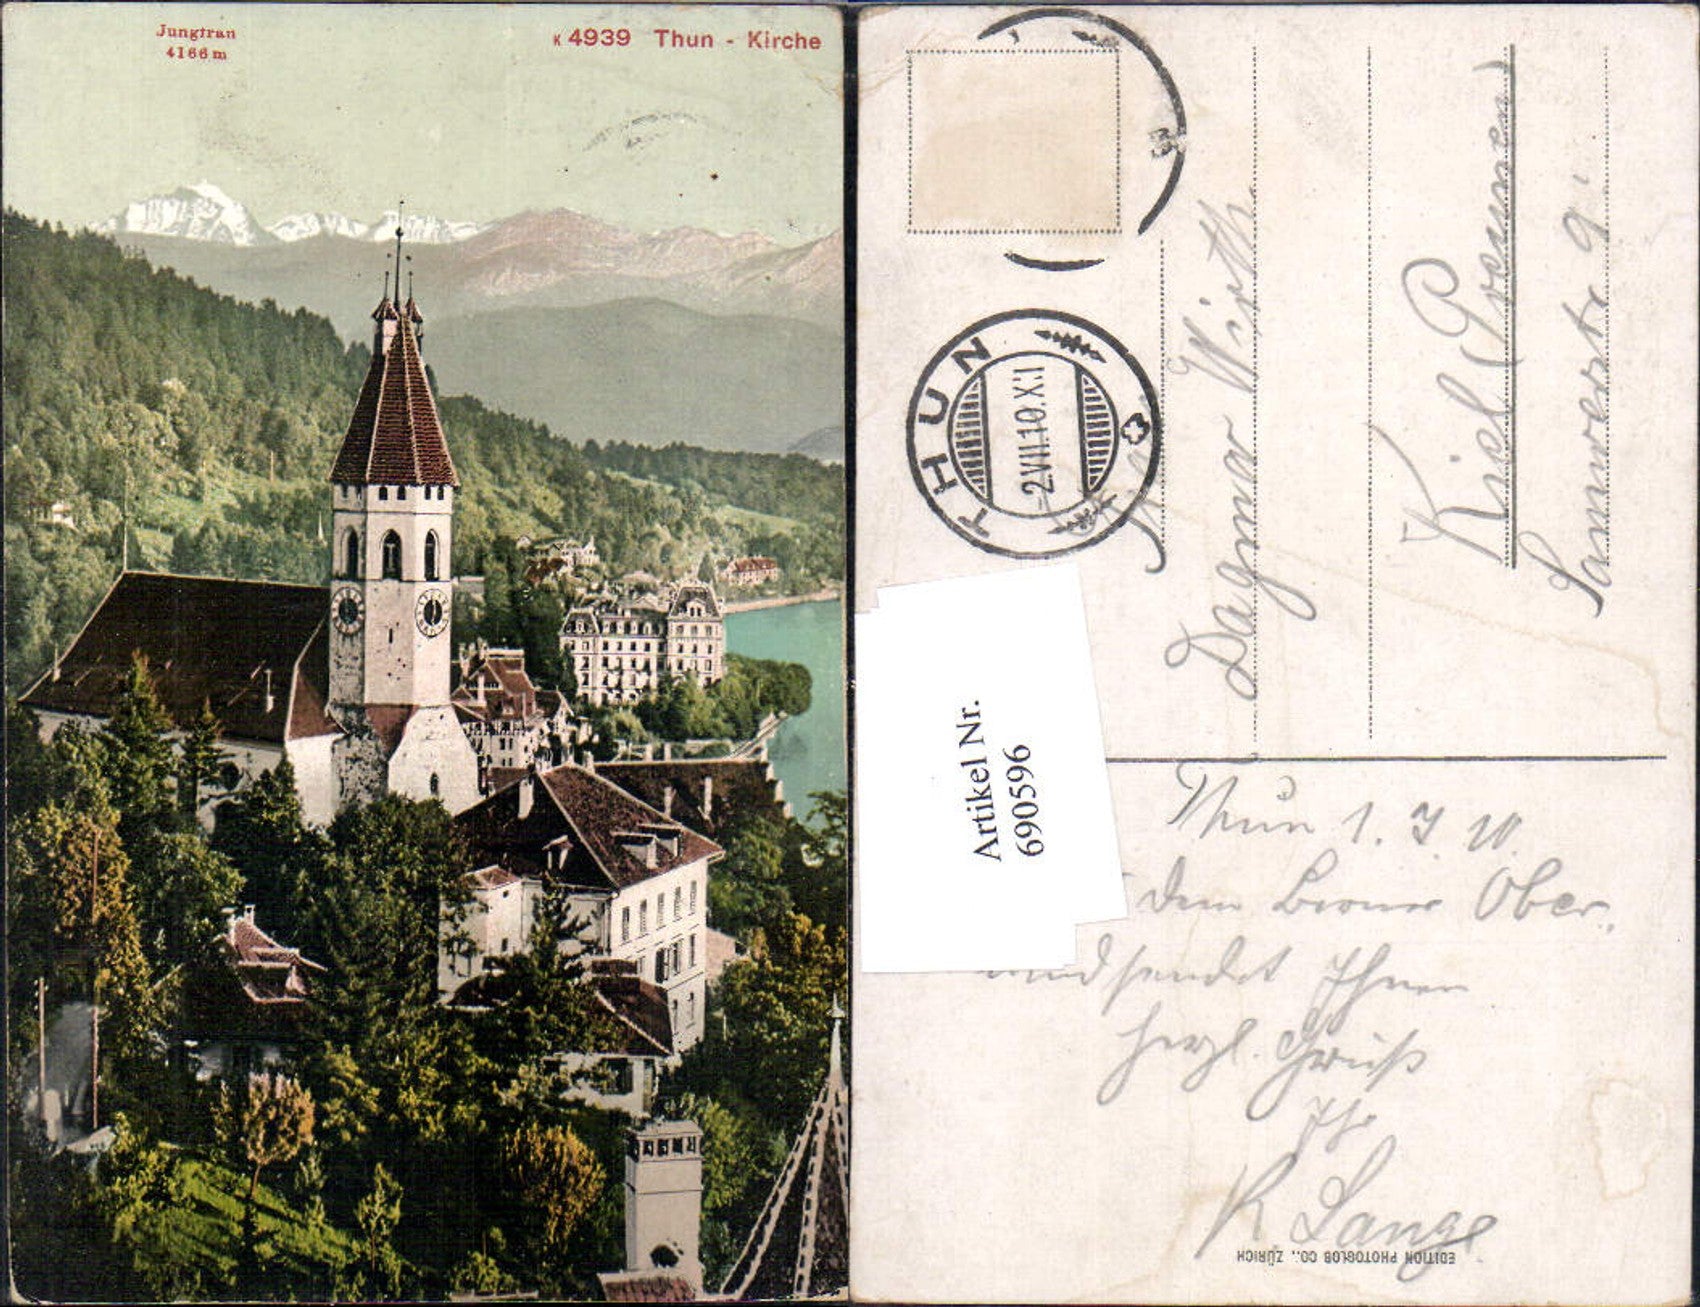 Jungfrau
4166 m
K 4939 Thun - Kirche
THUN
-2.VII.10.X.I
Dagmar Wirth
Kiel (Preussen)
9.
Artikel Nr.
690596
Thun 1. 7. 10.
dem Berner Ober-
sendet Ihnen
herzl. Gruß
Ihr
R Lange
EDITION PHOTOGLOB CO., ZÜRICH